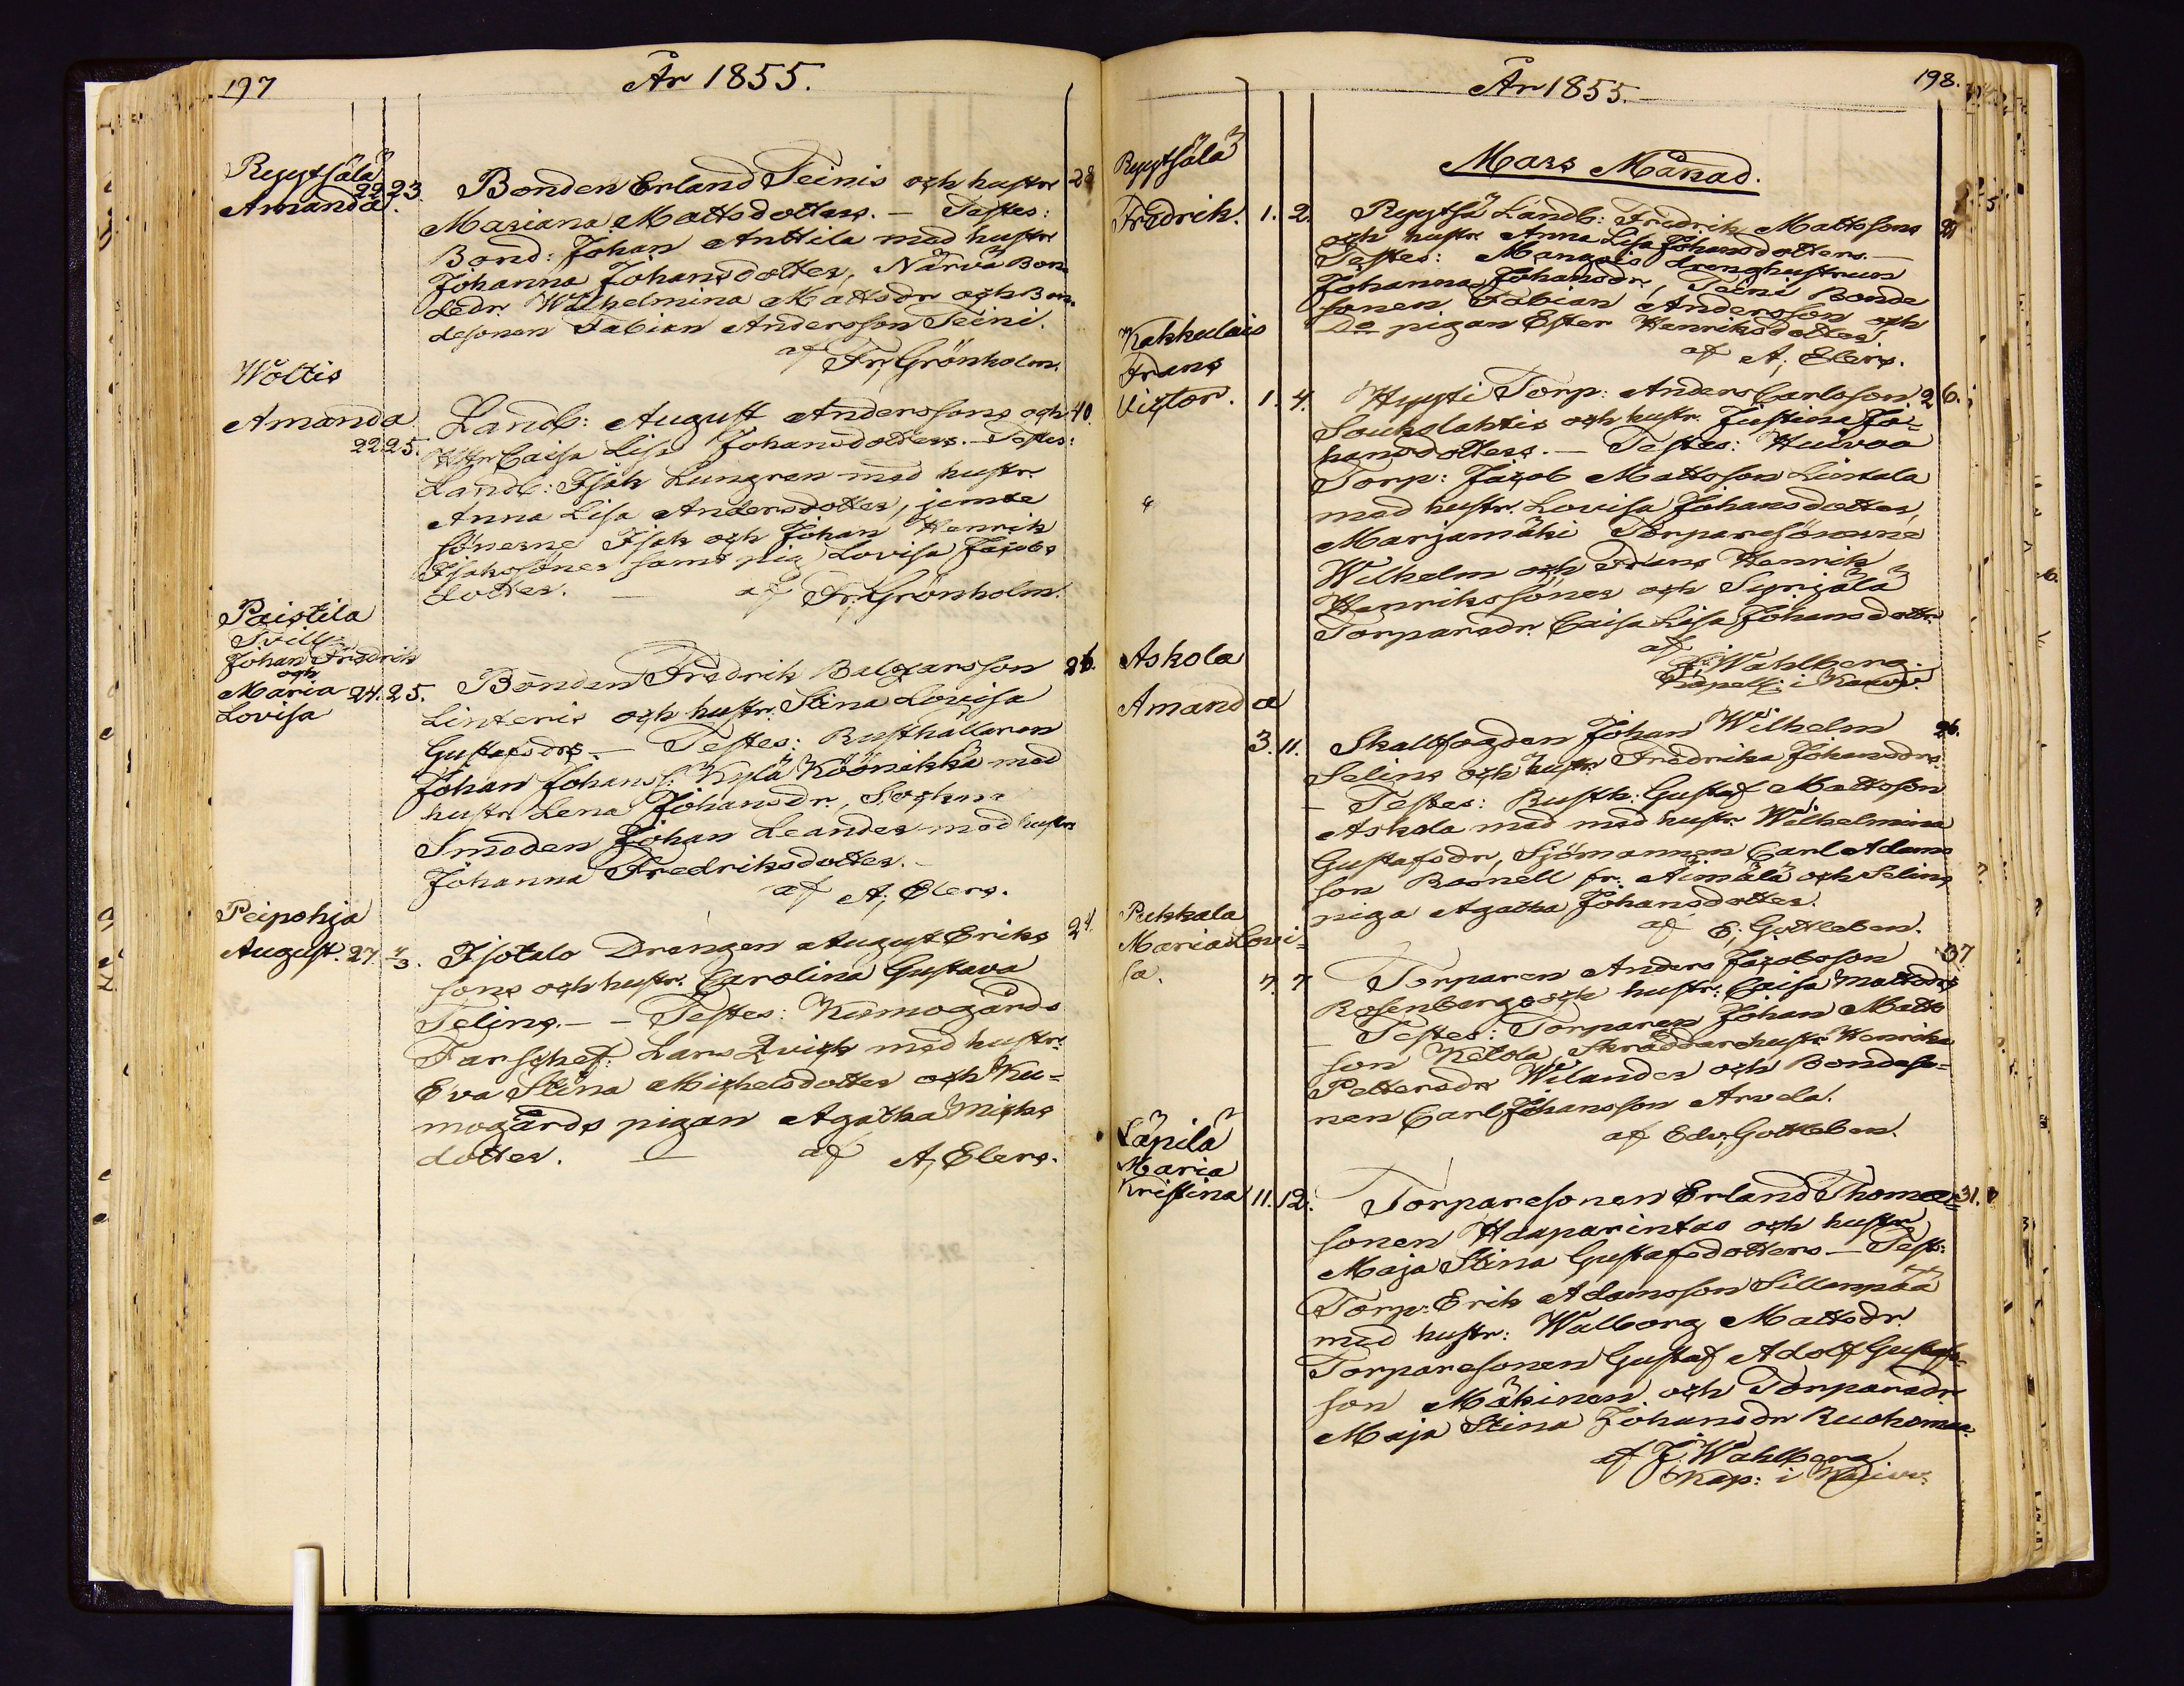 197
År 1855.
Rygtsälä
Amanda. 22. 23.
Bonden Erland Teinis och hustr 28
Mariana Mattsdotters. — Testes:
Bond: Johan Anttila med hustr
Johanna Johansdotter, Närvä Bon-
dedr. Wilhelmina Mattsdr och Bon-
desonen Fabian Andersson Teini.
af Fr; Grönholm.
Woltis
Amanda 22. 25.
Landb: August Anderssons och 40.
Htr Caisa Lisa Johansdotters. — Testes:
Landb: Isak Lungren med hustr.
Anna Lisa Andersdotter, jemte
sönerne Isak och Johan Henrik
Isakssöner samt pig. Lovisa Jacobs
dotter. — af Fr; Grönholm.
Paistila
Tvill:
Johan Fredrik
och
Maria 24. 25.
Lovisa
Bonden Fredrik Balzarsson 26.
Linteris och hustr. Stina Lovisa
Gustafsdrs. — Testes: Rusthållaren
Johan Johans: Kylä Köönikkä med
hustr Lena Johansdr, Sockne
Smeden Johan Leander med hustr
Johanna Fredriksdotter. —
af A; Elers.
Peipohja
August. 27. 4/3.
Isotalo Drängen August Eriks 24.
sons och hustr. Carolina Gustava
Felins. — — Testes: Kumogårds
Farschef: Lars Qvick med hustr:
Eva Stina Michelsdotter och Ku-
mogårds pigan Agatha Michs
dotter. — af A; Elers.
År 1855.
198.
Mars Månad.
Rygtsälä
Fredrik. 1. 2.
Rygtsä Landb: Fredrik Mattssons 21
och hustr. Anna Lisa Johansdotters. —
Testes: Mangois drenghustrun
Johanna Johansdr, Teini Bonde
sonen Fabian Andersson och
Do pigan Ester Henriksdotter.
af A; Elers.
Kakkulais
Frans
Victor. 1. 4.
Hygti Torp: Anders Carlsson 26.
Soukolahtis och hustr. Justina Jo-
hansdotters. — Testes: Huivoo
Torp: Jacob Mattsson Lintala
med hustr. Lovisa Johansdotter,
Marjamäki Torparesönerne
Wilhelm och Frans Henrik
Henrikssöner och Syrjälä
Torparedr. Caisa Lisa Johansdottr.
af
J; Wahlberg.
Kapell: i
Askola
Amanda
3. 11.
Skallfogden Johan Wilhelm 26.
Selins och hustr. Fredrika Johansdrs.
— Testes: Rusth: Gustaf Mattsson
Askola med med hustr. Wilhelmina
Gustafsdr, Sjömannen Carl Adams
son Rosnell fr. Äimälä och Selins
piga Agatha Johansdotter.
af E; Gottleben.
Pukkala
Maria Lovi-
sa. 7. 7
Torparen Anders Jacobsson 37
Rosenbergs och hustr: Caisa Mattsdrs
— Testes: Torparen Johan Matts
son Ketola, Skräddarehustr. Henrika
Pettersdr Wilander och Bondeso-
nen Carl Johansson Arvela.
af Edv; Gottleben.
Läpilä
Maria
Kristina 11. 12.
Torparesonen Erland Thomas- 31.
sonen Haaparintas och hustr
Maja Stina Gustafsdotters — Test:
Torp: Erik Adamsson Sillanpää
med hustr: Walborg Mattsdr.
Torparesonen Gustaf Adolf Gustafs-
son Mäkinen och Torparedr
Maja Stina Johansdr Ruohomaa.
af J: Wahlberg
Kap: i